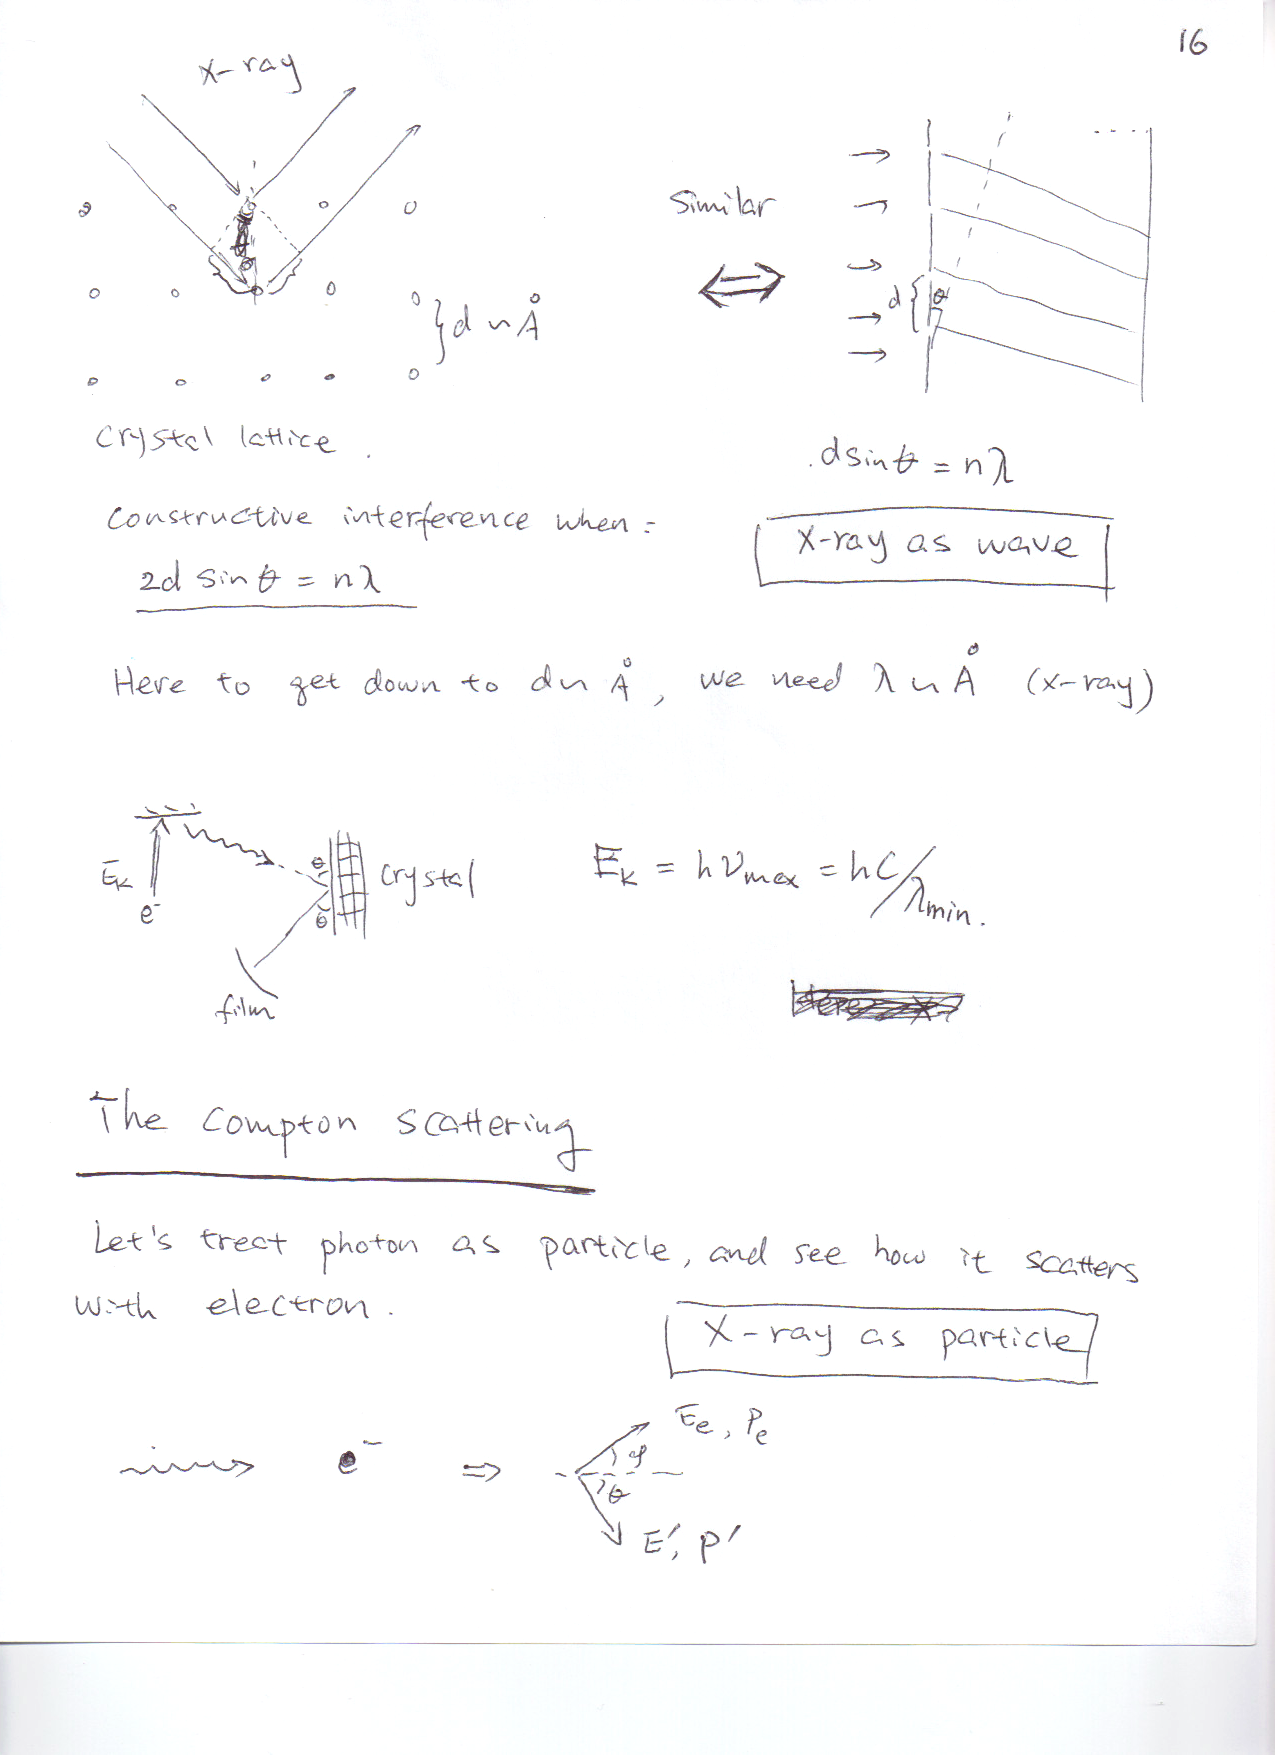 16
x-ray
Similar
d
θ
} d ~ Å
crystal lattice.
d sin θ = nλ
Constructive interference when:
X-ray as wave
2d sin θ = nλ
Here to get down to d ~ Å, we need λ ~ Å (x-ray)
Ek
e⁻
θ
θ
crystal
film
Ek = hνmax = hc/λmin.
The Compton scattering
Let's treat photon as particle, and see how it scatters
with electron.
X-ray as particle
e⁻ ⇒
Ee, Pe
φ
θ
E', P'